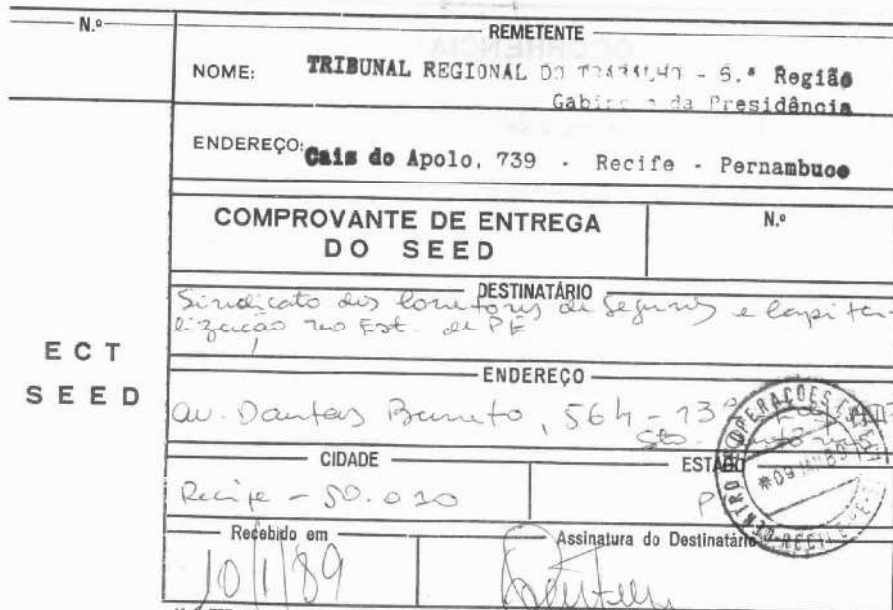 N.º
REMETENTE
NOME: TRIBUNAL REGIONAL DO TRABALHO - 6.ª Região
Gabinete da Presidência
ENDEREÇO: Cais do Apolo, 739 - Recife - Pernambuco
COMPROVANTE DE ENTREGA
DO SEED
N.º
DESTINATÁRIO
Sindicato dos Corretores de Seguros e Capita-
lização no Est. de PE
ECT
SEED
ENDEREÇO
Av. Dantas Barreto, 564 - 13º
Sto.
CIDADE
Recife - 50.010
ESTADO
P
CENTRO OPERAÇÕES
09 JAN 89
RECIFE
Recebido em
10/1/89
Assinatura do Destinatário